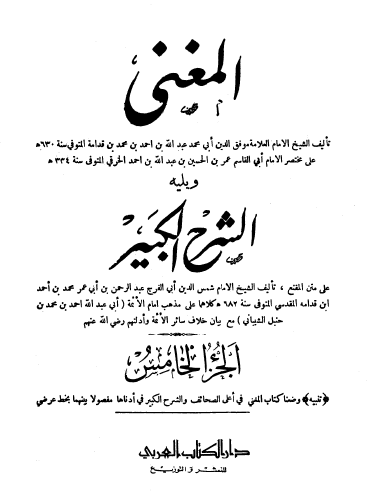 المغني
تأليف الشيخ الامام العلامة موفق الدين أبي محمد عبد الله بن احمد بن محمد بن قدامة المتوفى سنة ٦٣٠ ه
على مختصر الامام أبي القاسم عمر بن الحسين بن عبد الله بن احمد الخرقي المتوفى سنة ٣٣٤ ه
ويليه
الشرح الكبير
على متن المقنع ، تأليف الشيخ الامام شمس الدين أبي الفرج عبد الرحمن بن أبي عمر محمد بن أحمد
ابن قدامه المقدسي المتوفى سنة ٦٨٢ ه كلاهما على مذهب امام الأئمة ( أبي عبد الله احمد بن محمد بن
حنبل الشيباني ) مع بيان خلاف سائر الأئمة وأدلتهم رضي الله عنهم
الجزء الخامس
﴿تنبيه﴾ وضعنا كتاب المغني في أعلى الصحائف والشرح الكبير في أدناها مفصولا بينهما بخط عرضي
دار الكتاب العربي
للنشر و التوزيع